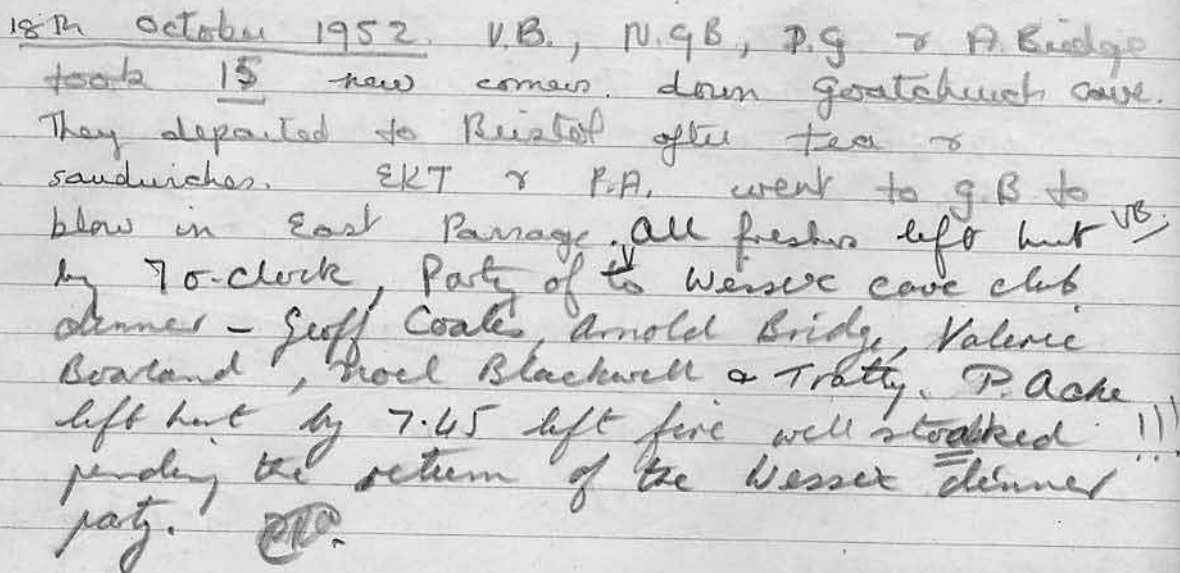 18th October 1952. V.B., N.G.B, P.G & A. Bridge
took 15 new comers. down Goatchurch cave.
They departed to Bristol after tea &
sandwiches. EKT & P.A. went to G.B to
blow in East Passage. All freshers left hut VB,
by 7 o-clock, Party of to Wessex cave club
dinner - Geoff Coates, Arnold Bridge, Valerie
Boaland, Noel Blackwell & Tratty. P. Acke
left hut by 7.45 left fire well stoaked !!!
pending the return of the Wessex dinner
party.